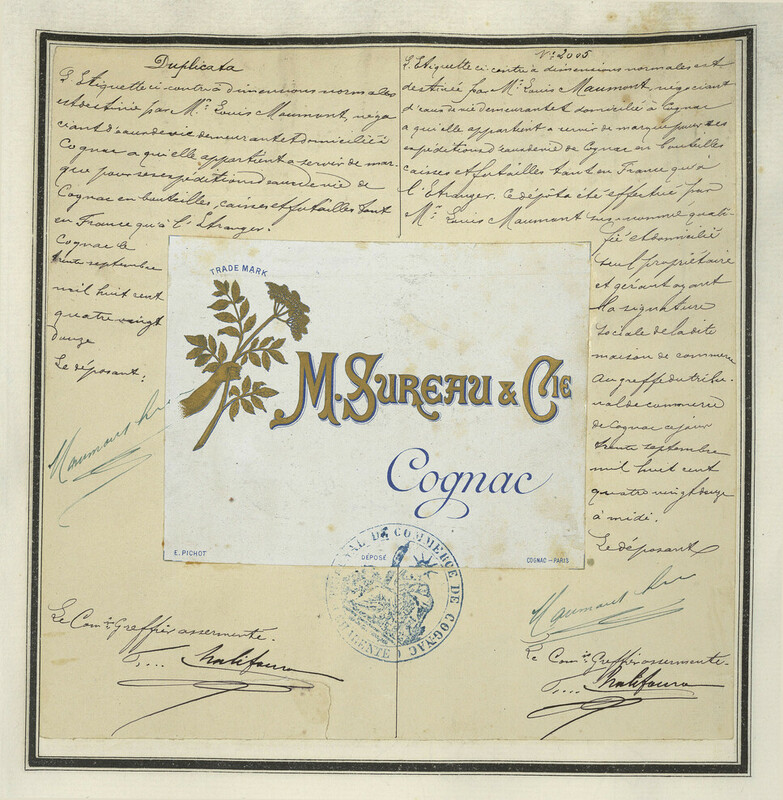 Duplicata
L'Etiquette ci-contre à dimensions normales
est destinée par Mr. Louis Maumont, négo
ciant d'eaux de vie demeurant et domicilié à
Cognac a qu'elle appartient a servir de mar-
que pour ses expéditions d'eaux de vie de
Cognac en bouteilles, caisses et futailles tant
en France qu'à l'Etranger.
Cognac le
trente septembre
mil huit cent
quatre vingt
douze
Le déposant:
Maumont
Le Comis Greffier assermenté.
No. 2005
L'Etiquette ci-contre à dimensions normales est
destinée par Mr. Louis Maumont, négociant
d'eaux de vie demeurant et domicilié à Cognac
a qu'elle appartient a servir de marque pour ses
expéditions d'eaux de vie de Cognac en bouteilles
caisses et futailles tant en France qu'à
l'Etranger. Ce dépôt a été effectué par
Mr. Louis Maumont sus-nommé quali-
fié et domicilié
seul propriétaire
et gérant ayant
la signature
sociale de la dite
maison de commerce
au greffe du tribu-
nal de commerce
de Cognac ce jour
trente septembre
mil huit cent
quatre vingt douze
à midi.
Le déposant
Maumont
Le Comis Greffier assermenté.
TRADE MARK
M. SUREAU & CIE
Cognac
E. PICHOT
DÉPOSÉ
COGNAC – PARIS
TRIBUNAL DE COMMERCE DE COGNAC
CHARENTE